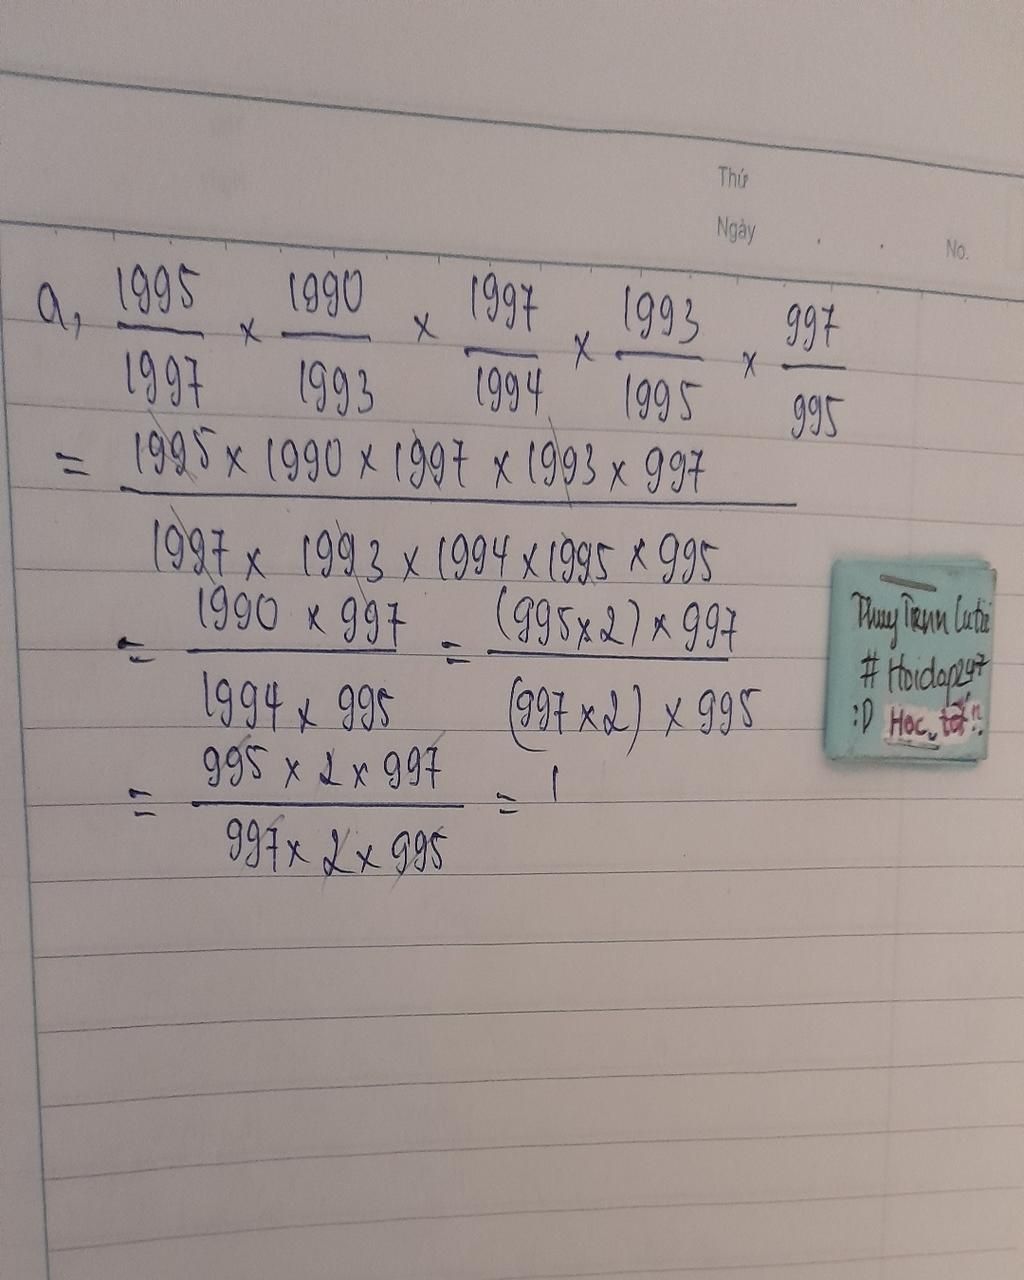 Thứ
Ngày . . No.
a, 1995/1997 x 1990/1993 x 1997/1994 x 1993/1995 x 997/995
= 1995 x 1990 x 1997 x 1993 x 997
1997 x 1993 x 1994 x 1995 x 995
= 1990 x 997 / 1994 x 995 = (995 x 2) x 997 / (997 x 2) x 995
= 995 x 2 x 997 / 997 x 2 x 995 = 1
Thuy
# Hoidap247
:D Học tốt